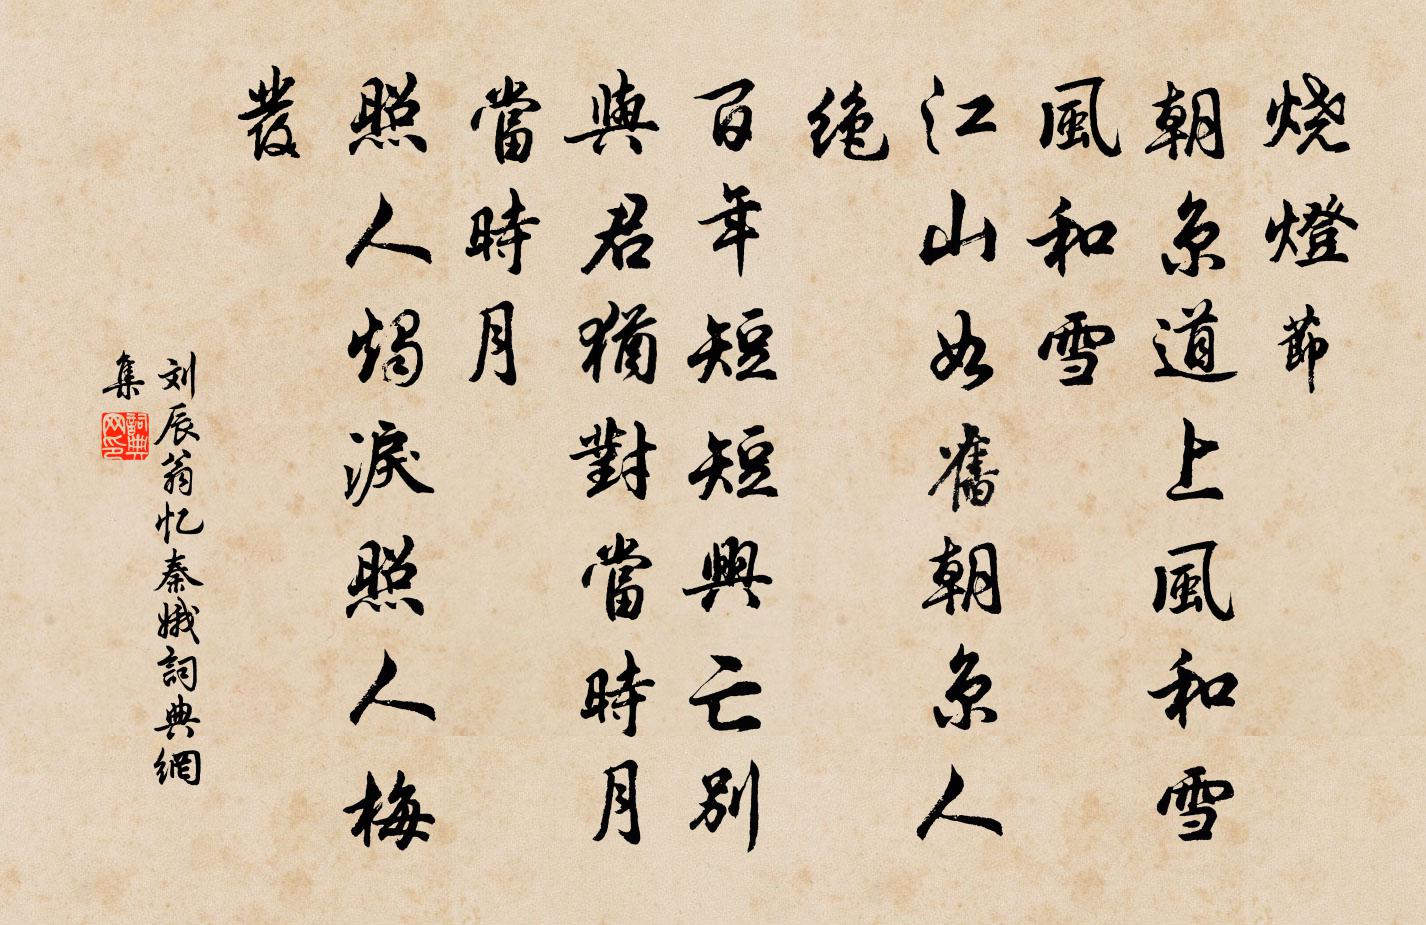 烧燈節
朝京道上風和雪
風和雪
江山如舊朝京人
绝
百年短短興亡別
與君猶對當時月
當時月
照人燭淚照人梅
髮
刘辰翁忆秦娥詞典網
集
詞典
网印